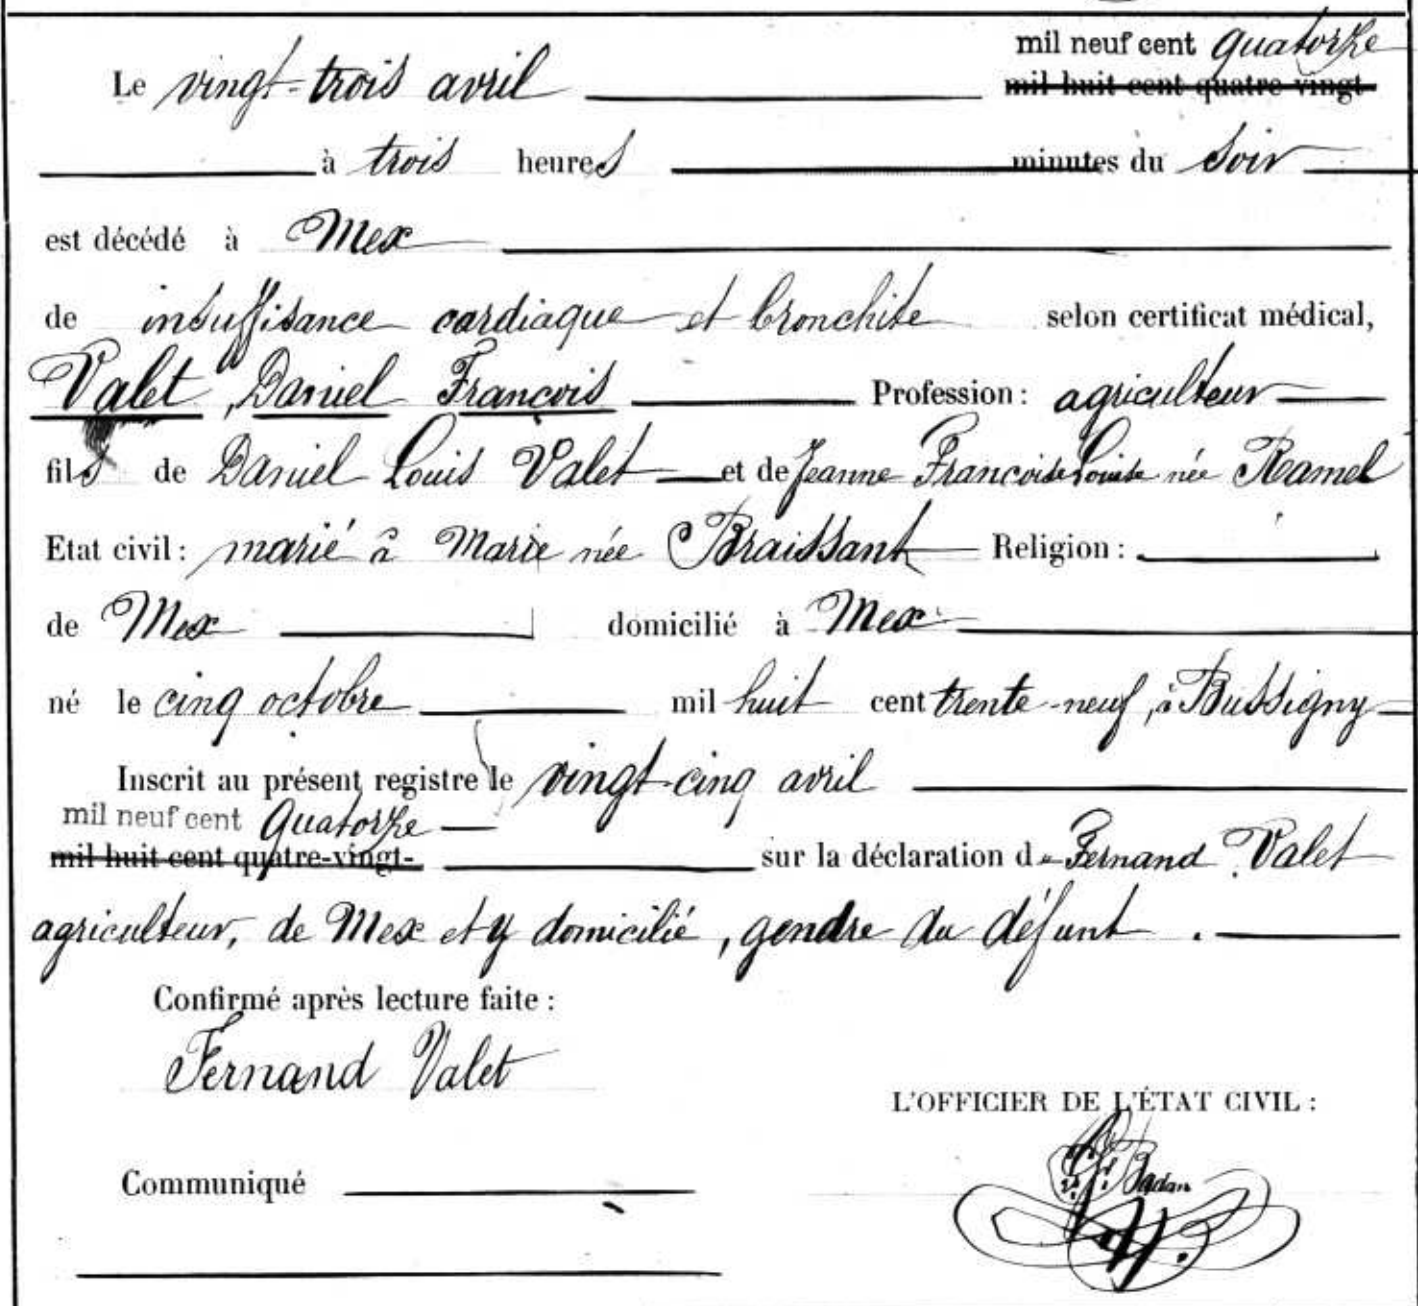 mil neuf cent quatorze
Le vingt-trois avril mil huit cent quatre-vingt-
à trois heures minutes du soir
est décédé à Mex
de insuffisance cardiaque et bronchite selon certificat médical,
Valet, Daniel François Profession : agriculteur
fils de Daniel Louis Valet et de Jeanne Françoise Louise née Ramel
Etat civil : marié à Marie née Braissant Religion :
de Mex domicilié à Mex
né le cinq octobre mil huit cent trente-neuf, à Bussigny
Inscrit au présent registre le vingt-cinq avril
mil neuf cent quatorze
mil huit cent quatre-vingt- sur la déclaration de Fernand Valet
agriculteur, de Mex et y domicilié, gendre du défunt.
Confirmé après lecture faite :
Fernand Valet
L'OFFICIER DE L'ÉTAT CIVIL :
Badan
Communiqué